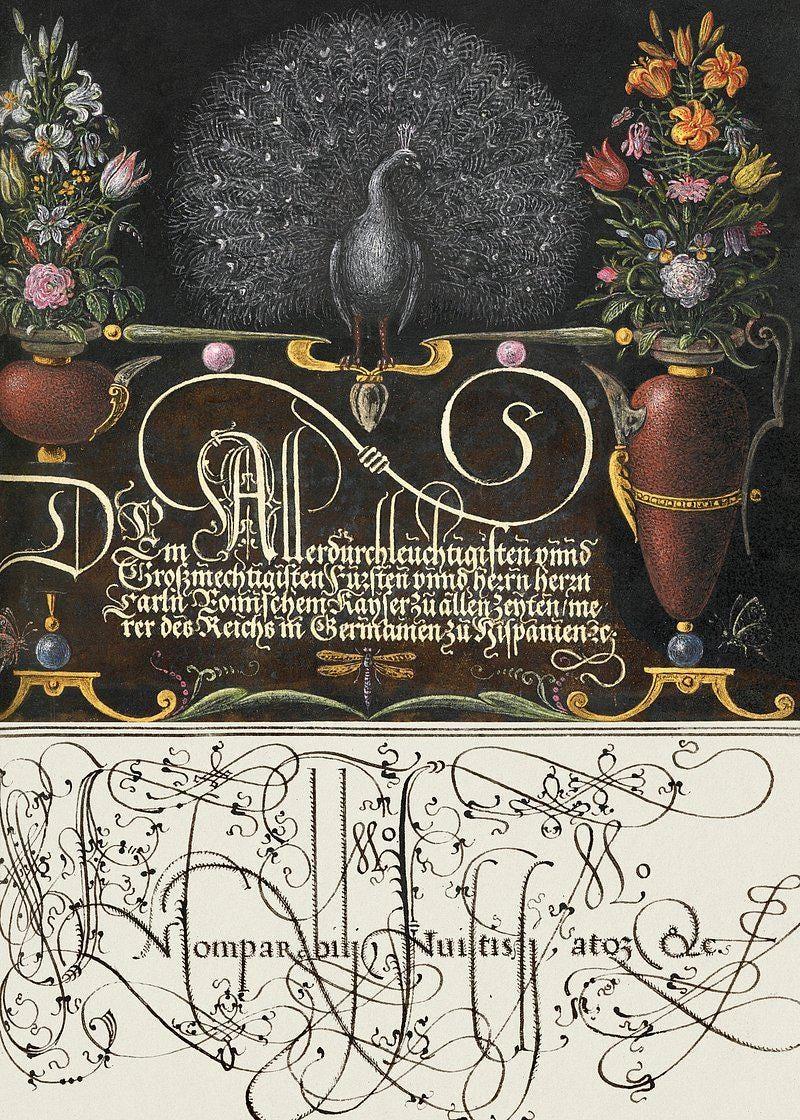 DEm Allerdürchleuchtigisten vnnd
Großmechtigisten Fürsten vnnd herrn herrn
Carln Romischem Kayser zu allen Zeyten / me
rer des Reichs in Germanien zu Hispanien ꝛc:
S
Mo Mo
omparabilij &c.